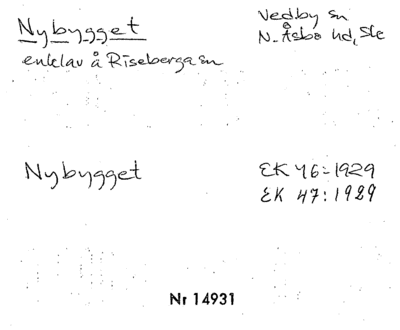 Nybygget
enklav å Riseberga sn
Vedby sn
N. Åsbo hd, Ske
Nybygget
EK 46:1929
EK 47:1929
Nr 14931